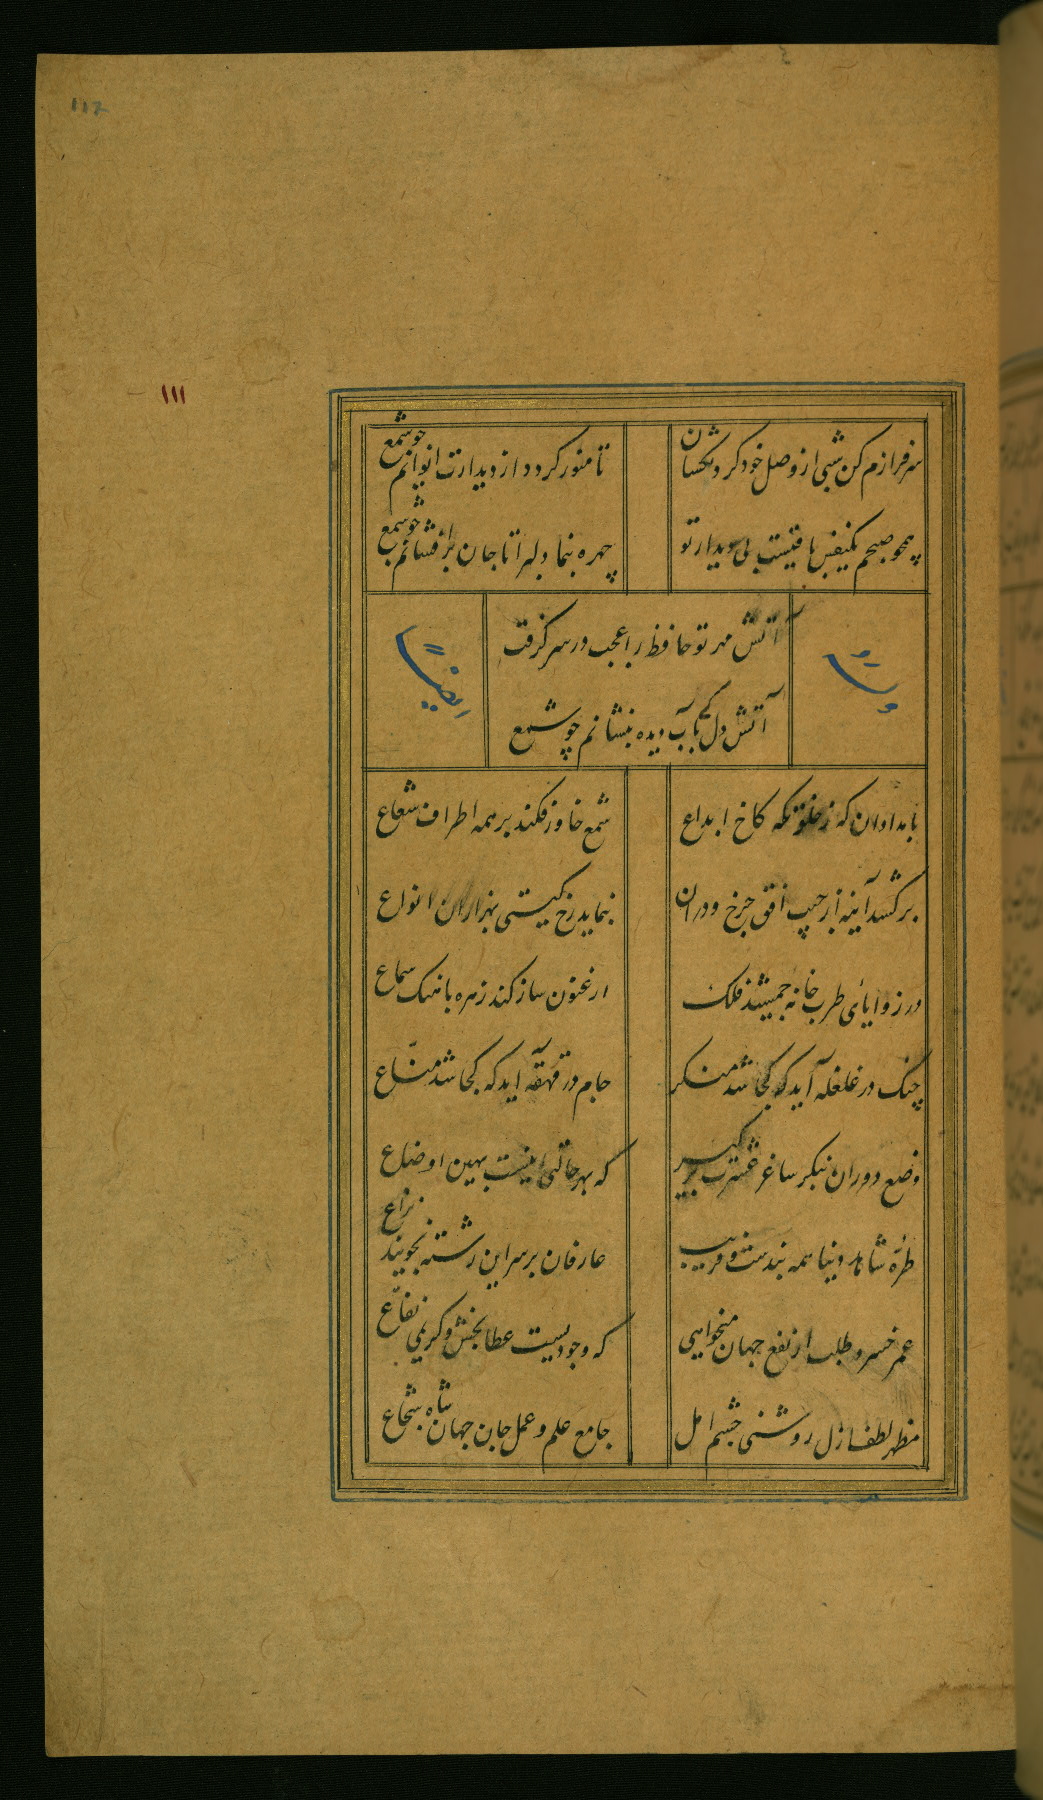 ۱۱۲
۱۱۱
سرفرازم کن شبی از وصل خود کردنکشان
تا منور کردد از دیدارت ایوانم چو شمع
همچو صبحم یکنفس باقیست بی دیدار تو
چهره بنما دلبرا تا جان برافشانم چو شمع
وله
آتش مهر تو حافظ را عجب در سر کرفت
آتش دل کی بآب دیده بنشانم چو شمع
ایضاً
بامدادان که ز خلوتکه کاخ ابداع
شمع خاور فکند بر همه اطراف شعاع
برکشد آینه از جیب افق چرخ و دران
بنماید رخ کیتی بهزاران انواع
در زوایای طرب خانه جمشید فلک
ارغنون ساز کند زهره باهنک سماع
چنک در غلغله آید که کجا شد منکر
جام در قهقهه آید که کجا شد منّاع
وضع دوران بنکر ساغر عشرت برگیر
که بهر حالتی اینست بهین اوضاع
طرّه شاهد دنیا همه بندست و فریب
عارفان بر سر این رشته نجویند نزاع
عمر خسرو طلب ار نفع جهان میخواهی
که وجودیست عطابخش و کریمی نفّاع
مظهر لطف ازل روشنی چشم امل
جامع علم و عمل جان جهان شاه شجاع